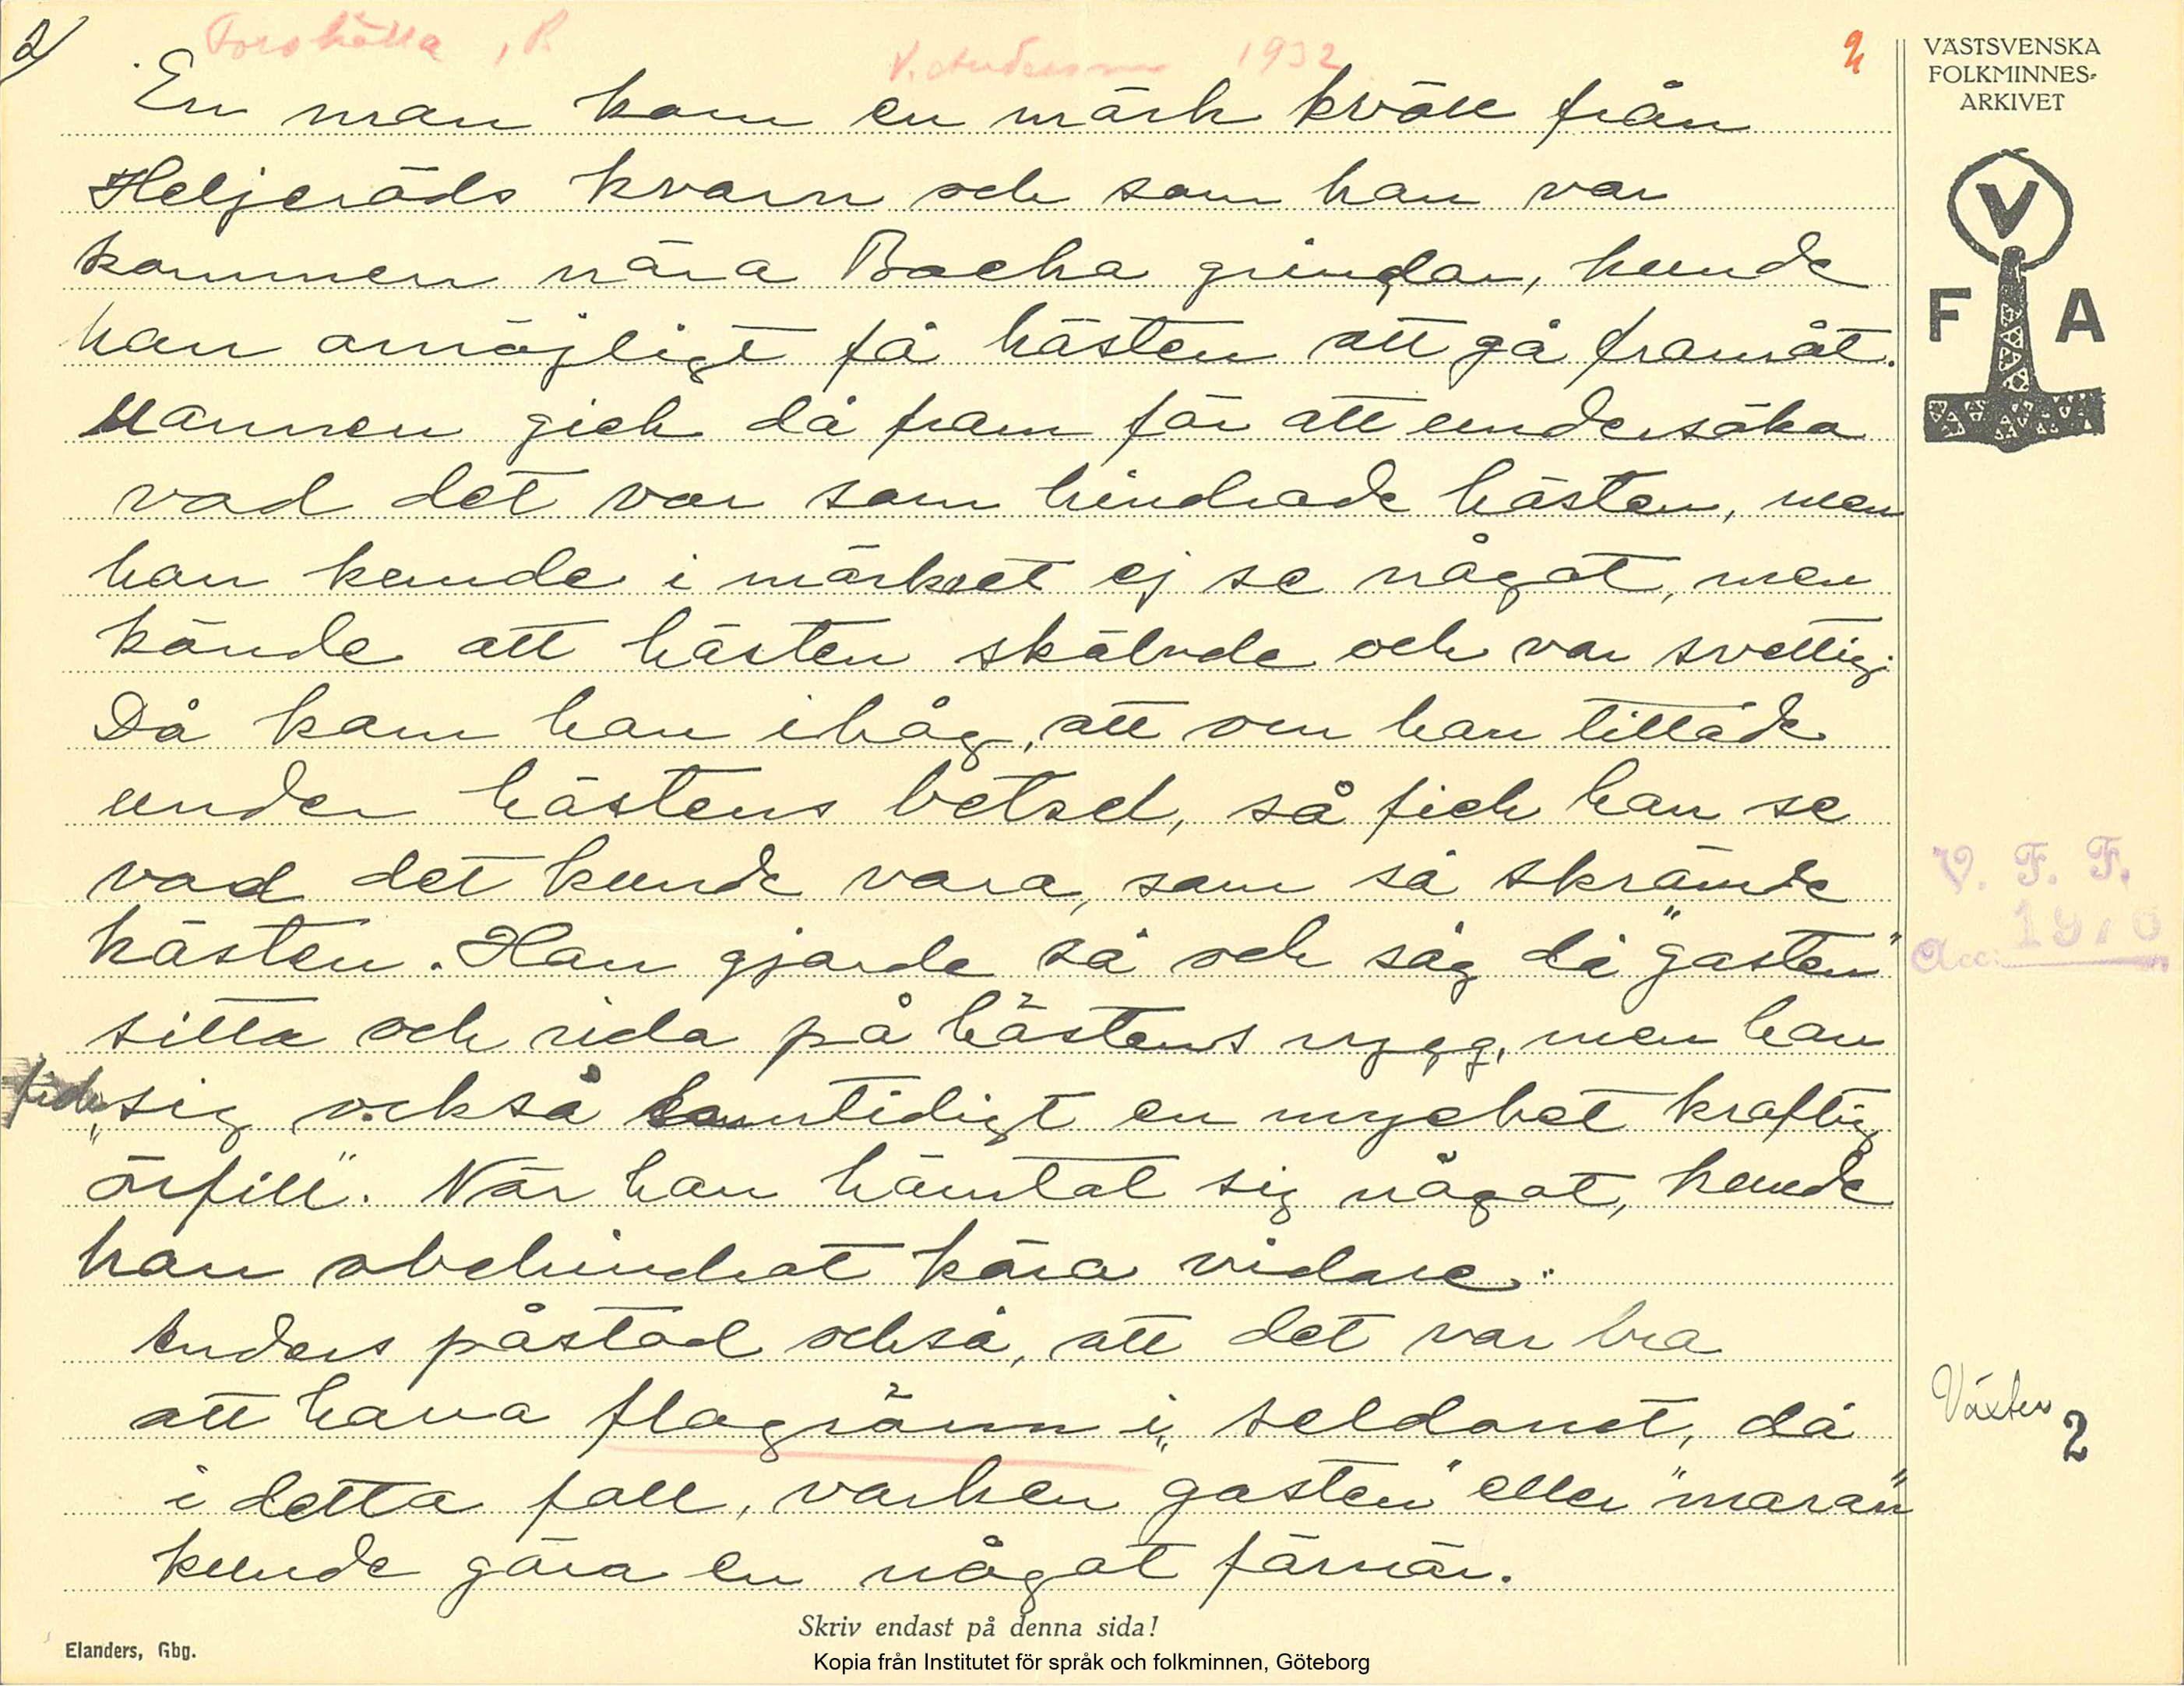 2/
Forshälla, B
V. Andersson 1932
2
VÄSTSVENSKA
FOLKMINNES-
ARKIVET
V
F A
En man kom en mörk kväll från
Heljeröds kvarn och som han var
kommen nära Backa grindar, kunde
han omöjligt få hästen att gå framåt.
Mannen gick då fram för att undersöka
vad det var som hindrade hästen, men
han kunde i mörkret ej se något, men
kände att hästen skälvde och var svettig.
Då kom han ihåg, att om han tittade
under hästens betsel, så fick han se
vad det kunde vara, som så skrämde
hästen. Han gjorde så och såg då "gasten"
sitta och rida på hästens rygg, men han
fick sig också samtidigt en mycket kraftig
"örfill". När han hämtat sig något, kunde
han obehindrat köra vidare.
Anders påstod också, att det var bra
att hava flogrönn i seldonet, då
i detta fall, varken "gasten" eller "maran"
kunde göra en något förnär.
V. F. F.
Acc.
Växter
2
Skriv endast på denna sida!
Elanders, Gbg.
Kopia från Institutet för språk och folkminnen, Göteborg